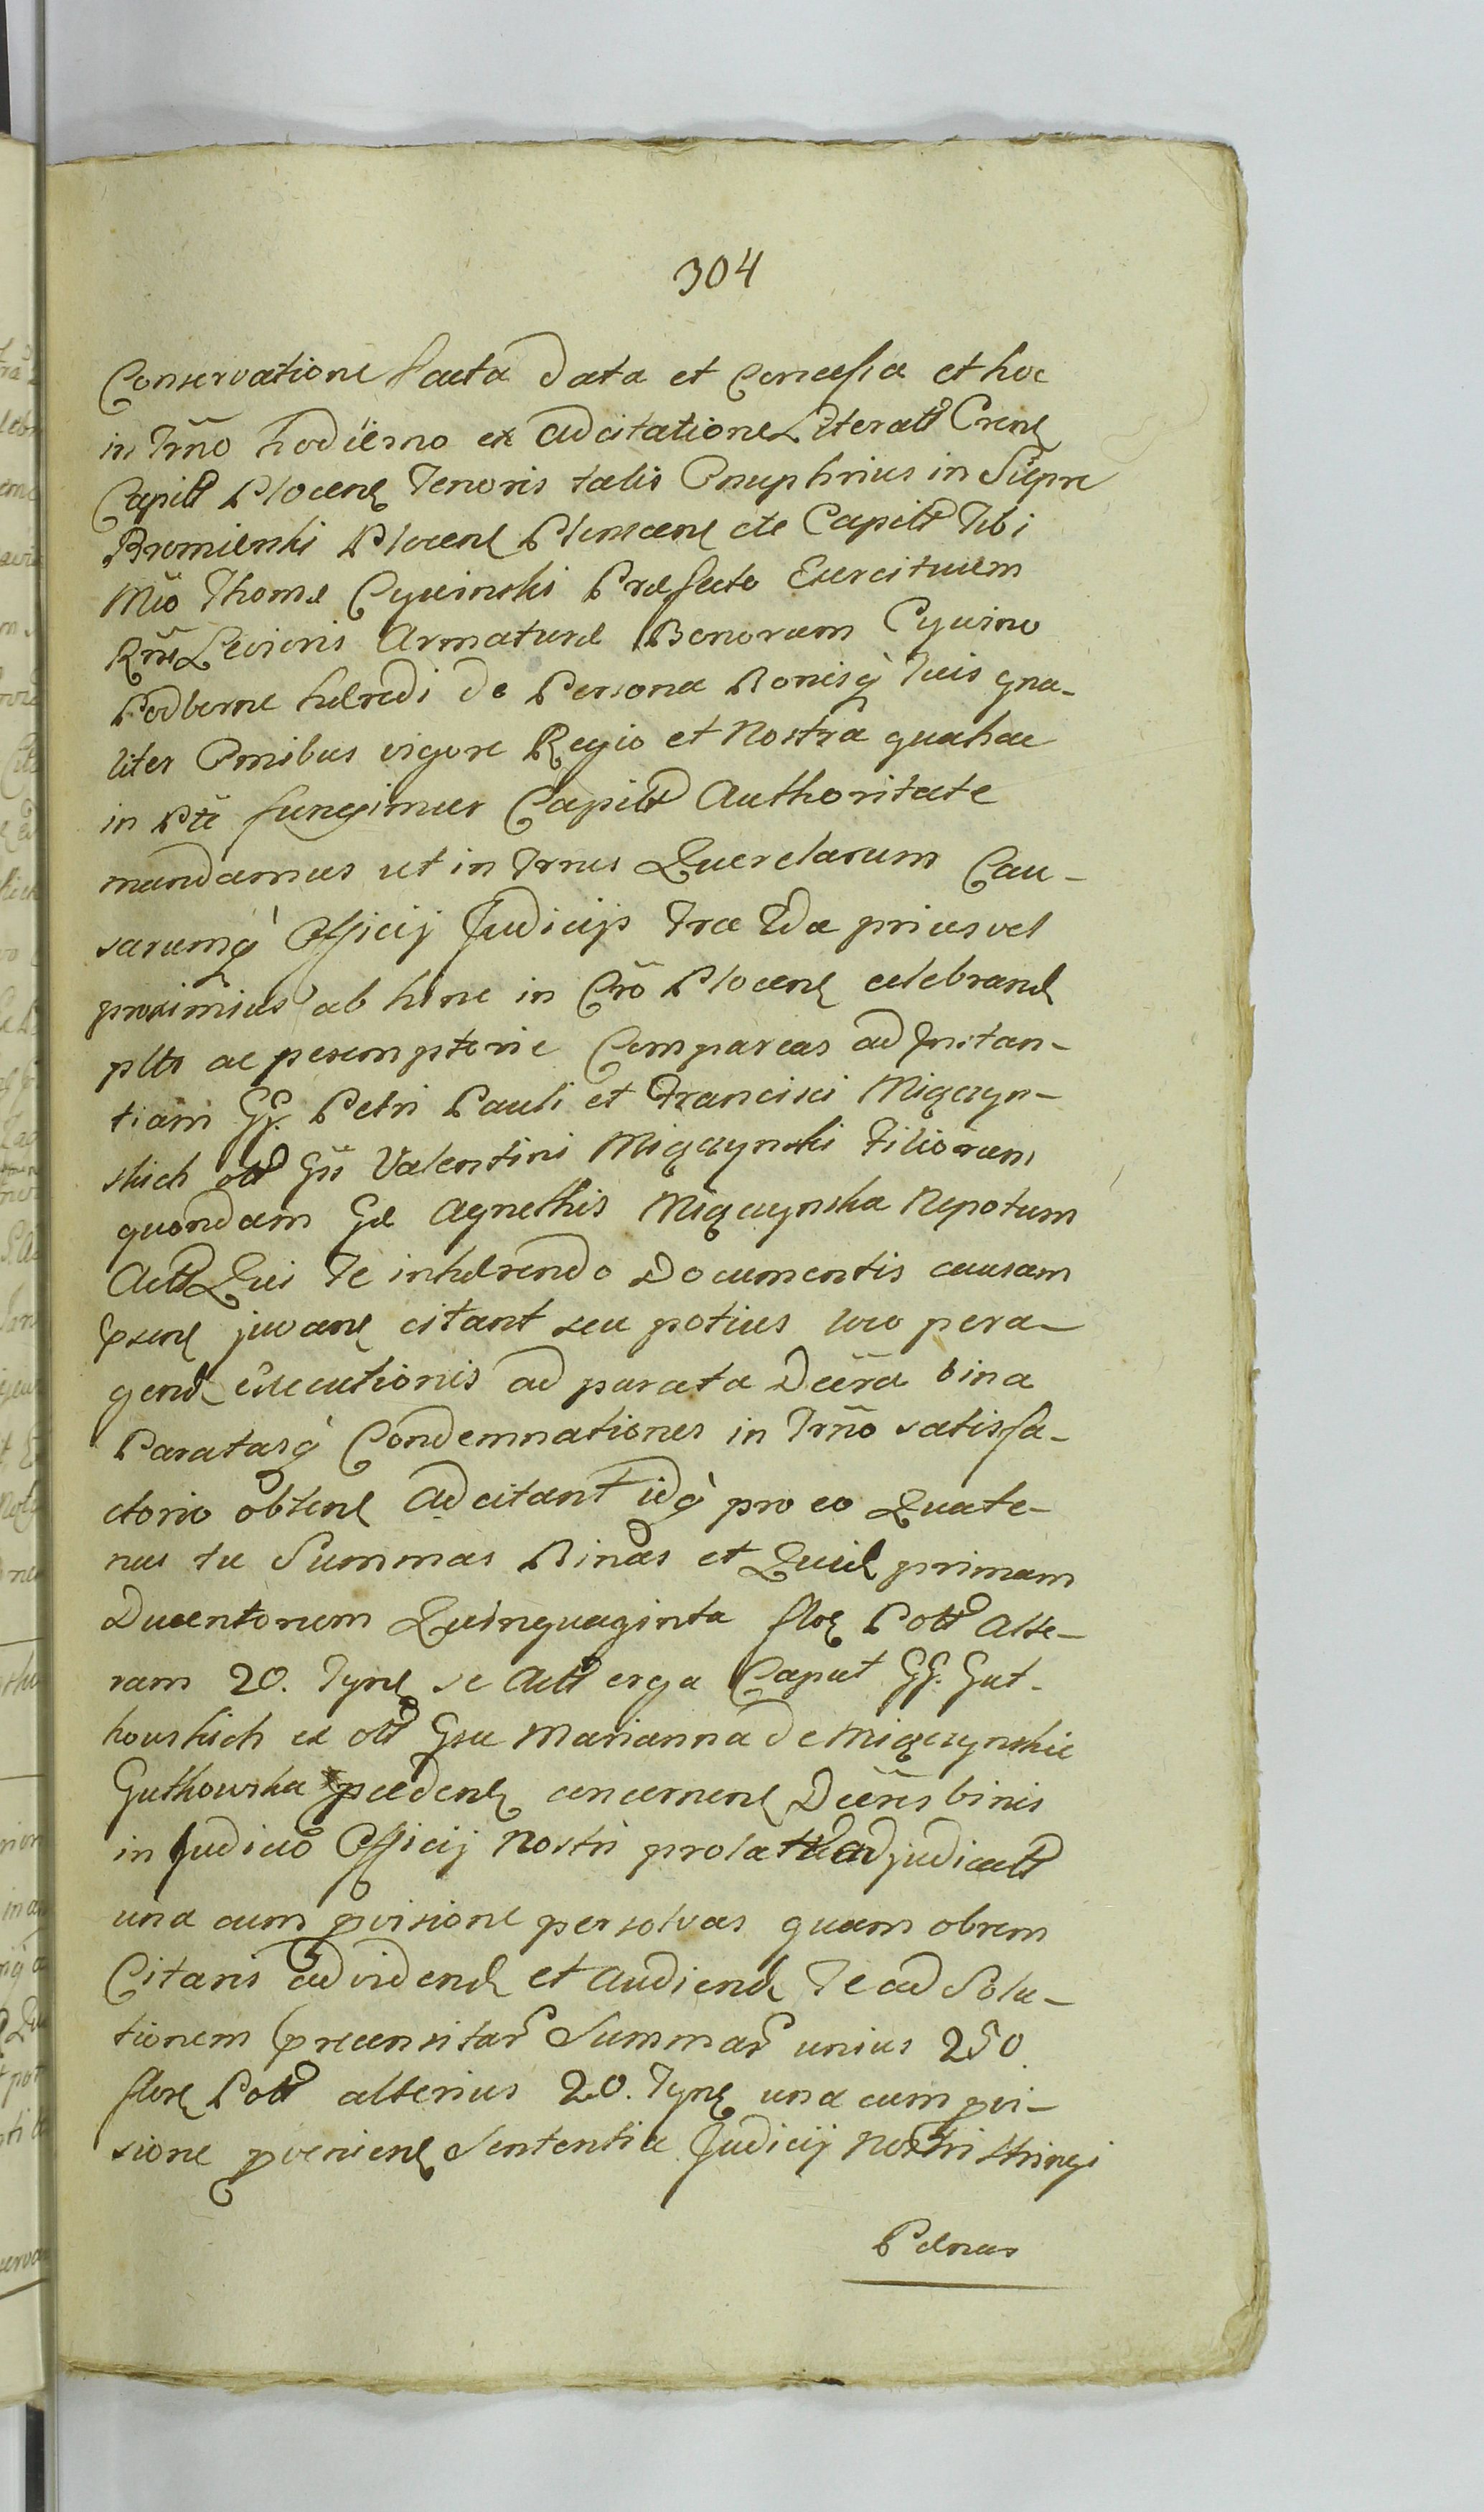 304
Conservatione facta data et Concessa et hoc
in Trno hodierno ex Adcitatione Literatt Cren
Capitt Plocen Tenoris talis Onuphrius in Siepre
Bromierski Plocen Plonscen etc Capitt Tibi
Mco Thomæ Cywinski Præfecto Exercituum
Rni Levioris Armaturæ Bonorum Cywino
Podborne hæredi de Persona Bonisq Tuis gna-
liter Omnibus vigore Regio et Nostra qua hac
in Pte fungimur Capitt Authoritate
mandamus ut in Trnis Querelarum Cau-
sarumq Officij Judicijs Træ Idæ prius vel
proximius ab hinc in Cro Plocen celebrand
pltr ac peremptorie Compareas ad Instan-
tiam GG. Petri Pauli et Francisci Miączyn-
skich ott Gsi Valentini Miączynski Filiorum
quondam Gæ Agnethis Miączynska Nepotum
Actt Qui Te inhærendo Documentis causam
psen juvan citant seu potius loco pera-
gend executionis ad parata Decra bina
Paratasq Condemnationes in Trno satisfa-
ctorio obten adcitant idq pro eo Quate-
nus tu Summas Binas et Quid primam
Ducentorum Quinquaginta flor Poll Alte-
ram 20. Tyn se Actt erga Caput GG. Gut-
kowskich ex ott Gsa Marianna de Miączynskie
Gutkowska pceden concernen Decris binis
in Judicio Officij Nostri prolat adjudicatt
una cum pvisione persolvas quam obrem
Citaris ad vidend et audiend Te ad Solu-
tionem precensitar Summar unius 250
flor Poll alterius 20. Tyn una cum pvi-
sione pvenien Sententia Judicij Nostri stringi
Pænas